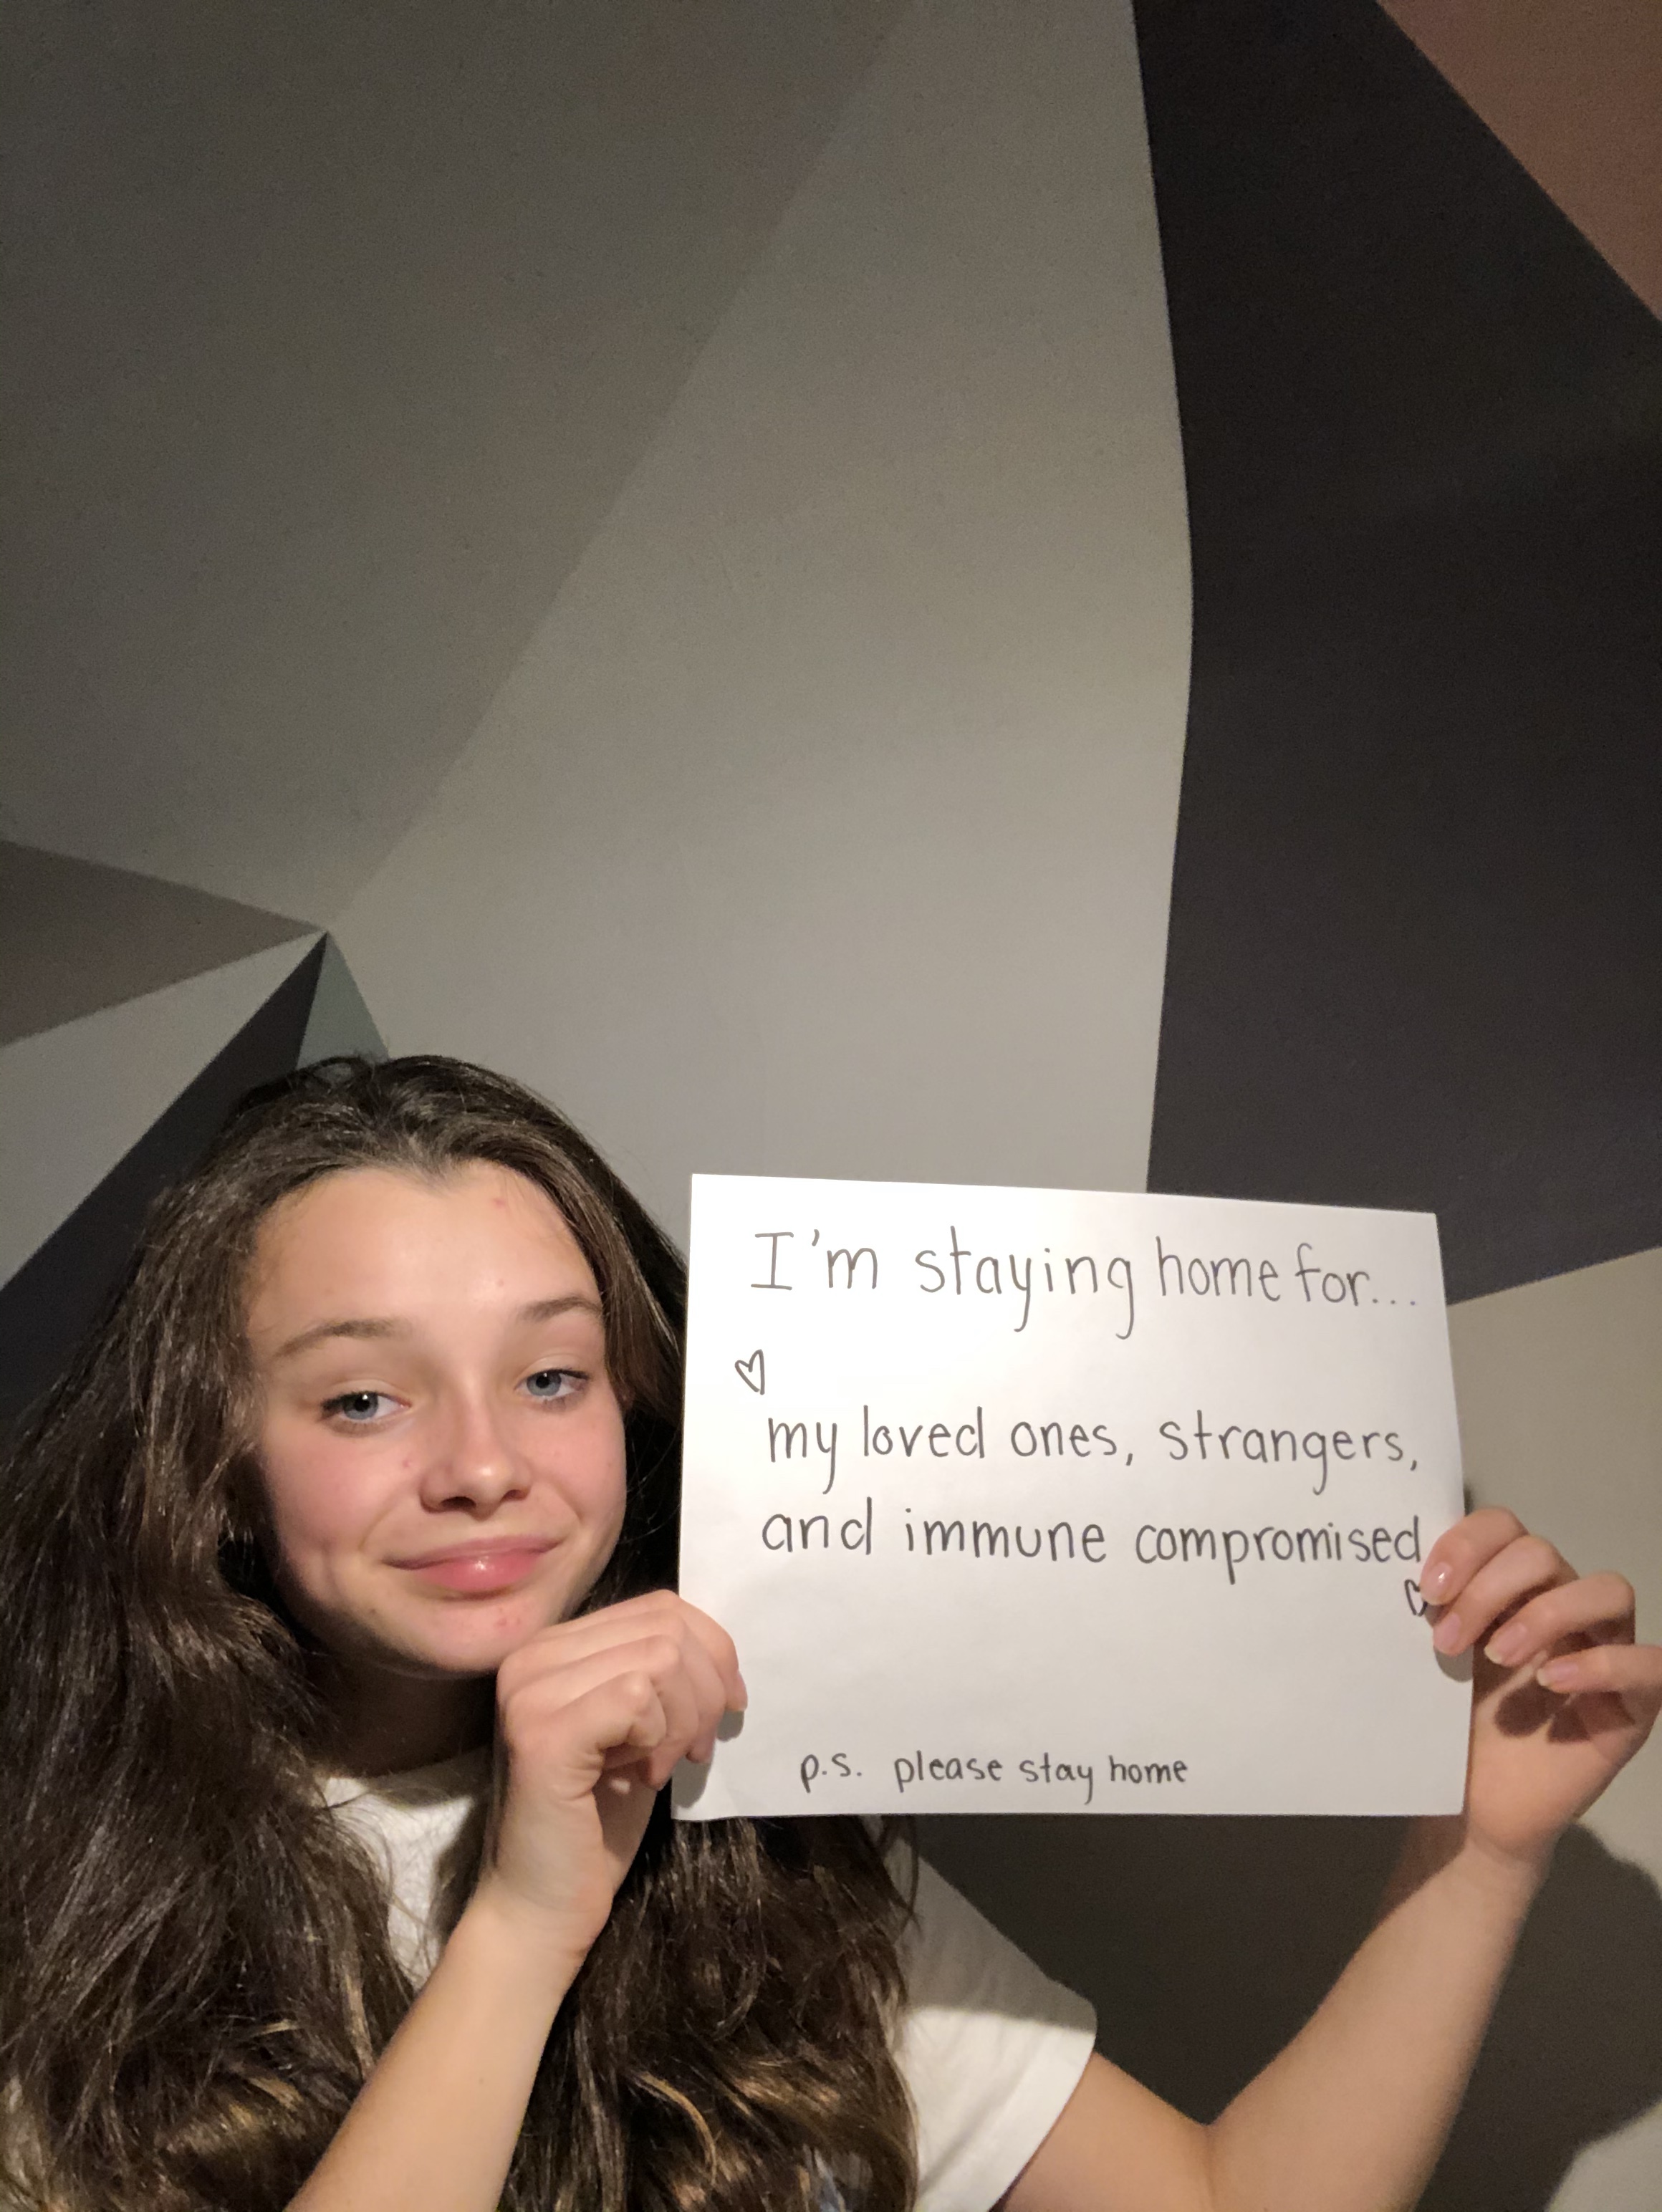 I'm staying home for...
my loved ones, strangers,
and immune compromised
p.s. please stay home